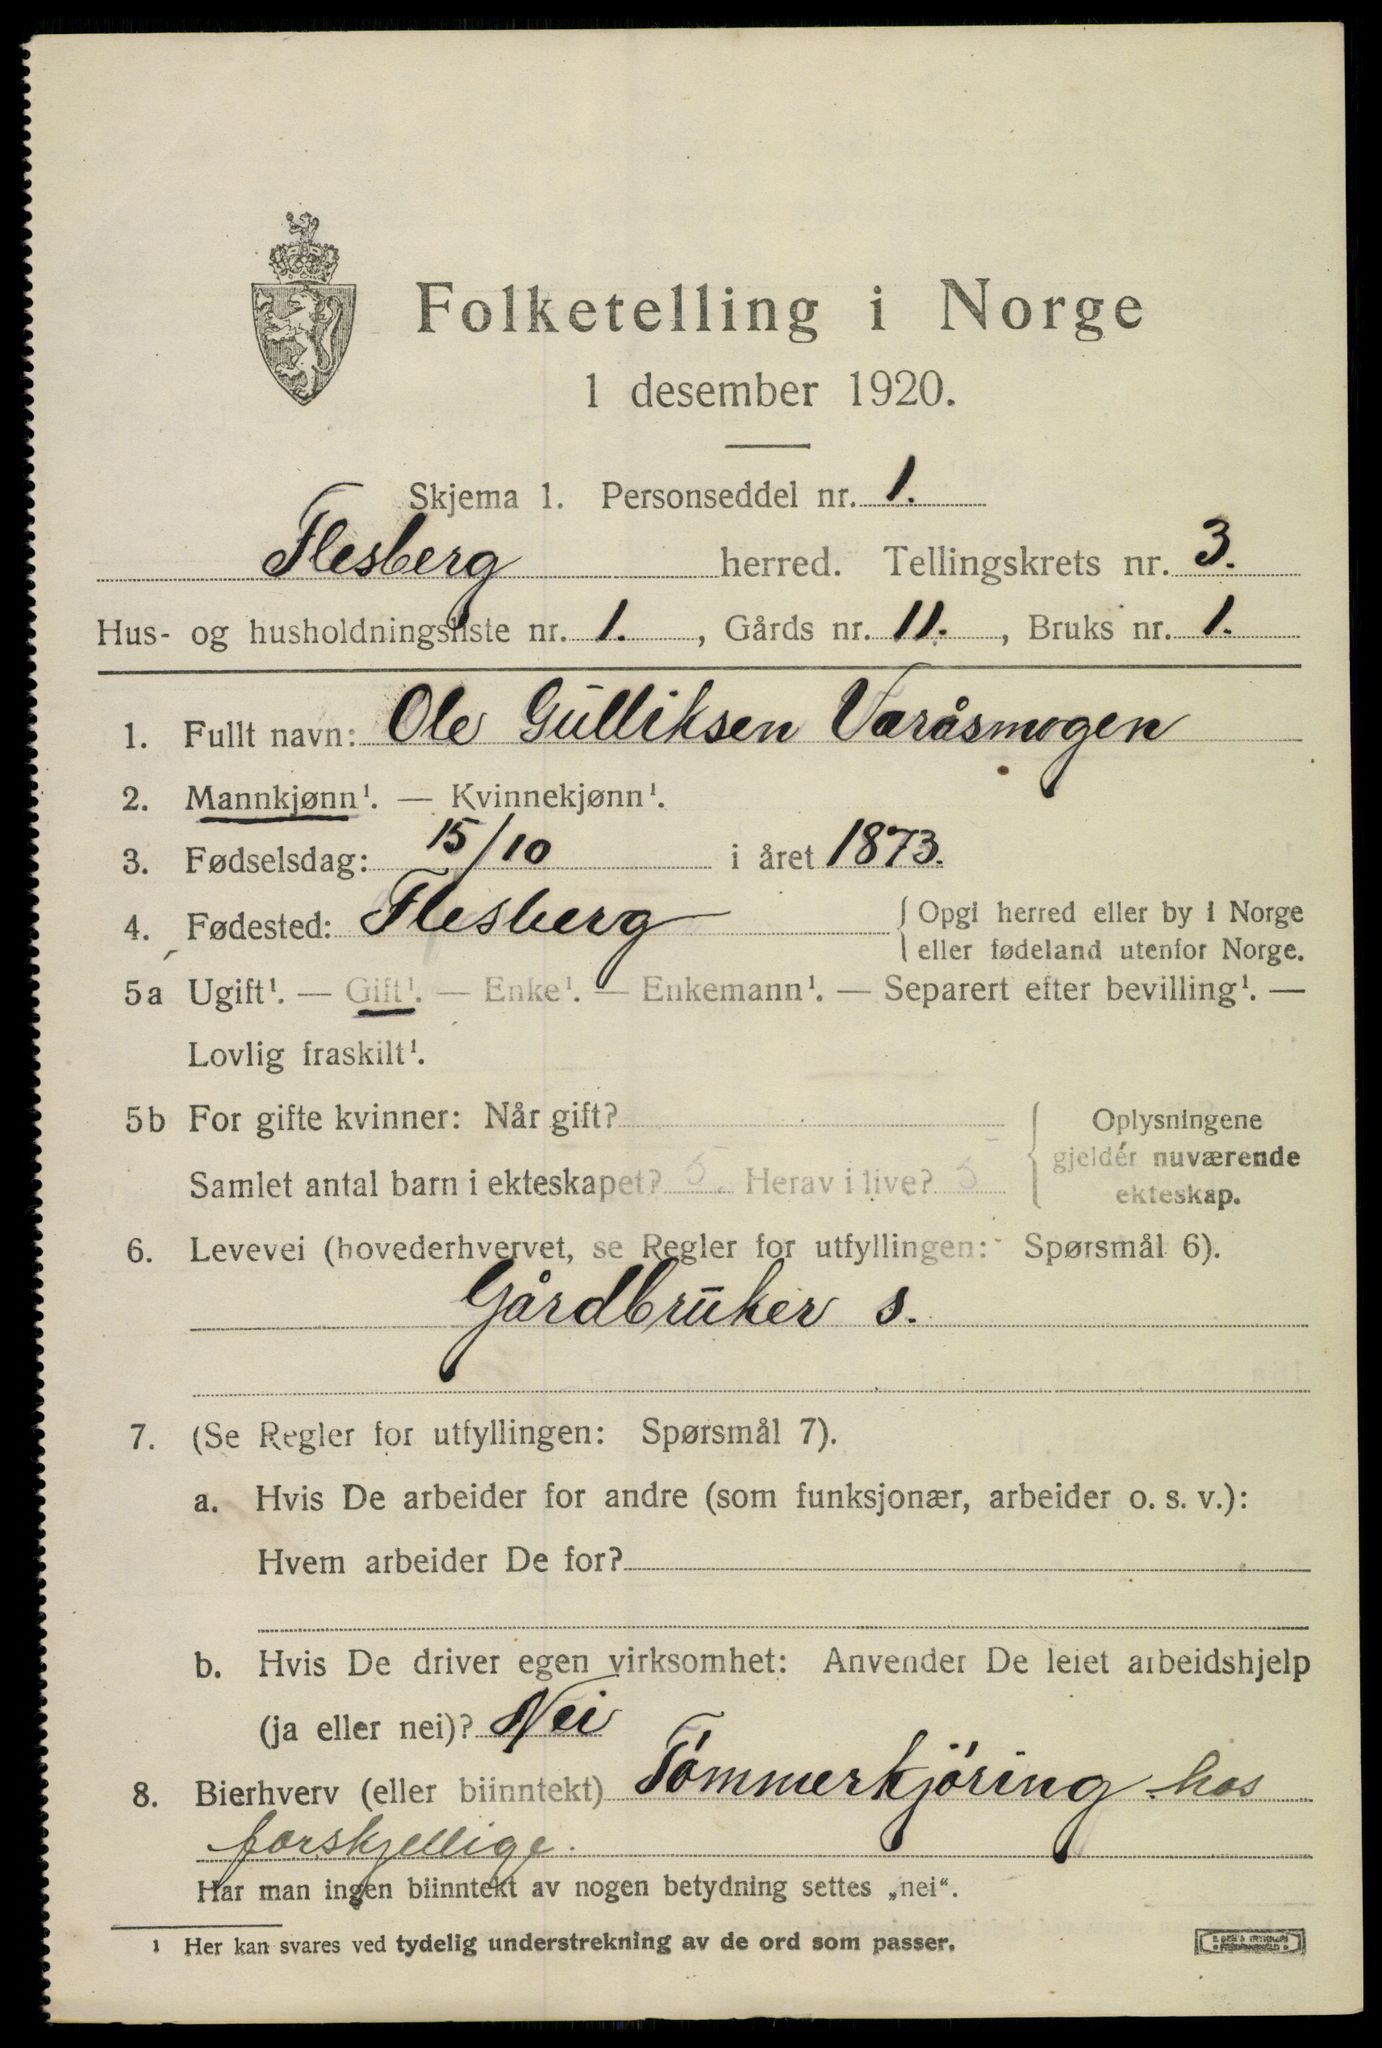 Folketelling i Norge
1 desember 1920.
Skjema 1. Personseddel nr. 1.
Flesberg herred. Tellingskrets nr. 3.
Hus- og husholdningsliste nr. 1., Gårds nr. 11., Bruks nr. 1.
1. Fullt navn: Ole Gulliksen Varåsmogen
2. Mannkjønn¹. — Kvinnekjønn¹.
3. Fødselsdag: 15/10 i året 1873.
4. Fødested: Flesberg { Opgi herred eller by i Norge
eller fødeland utenfor Norge.
5a Ugift¹. — Gift¹. — Enke¹. — Enkemann¹. — Separert efter bevilling¹. —
Lovlig fraskilt¹.
5b For gifte kvinner: Når gift? { Oplysningene
gjeldér nuværende
Samlet antal barn i ekteskapet? 5. Herav i live? 5
ekteskap.
6. Levevei (hovederhvervet, se Regler for utfyllingen: Spørsmål 6).
Gårdbruker s.
7. (Se Regler for utfyllingen: Spørsmål 7).
a. Hvis De arbeider for andre (som funksjonær, arbeider o. s. v.):
Hvem arbeider De for?
b. Hvis De driver egen virksomhet: Anvender De leiet arbeidshjelp
(ja eller nei)? Nei
8. Bierhverv (eller biinntekt) Tómmerkjóring hos
forskjellige.
Har man ingen biinntekt av nogen betydning settes „nei“.
¹ Her kan svares ved tydelig understrekning av de ord som passer.